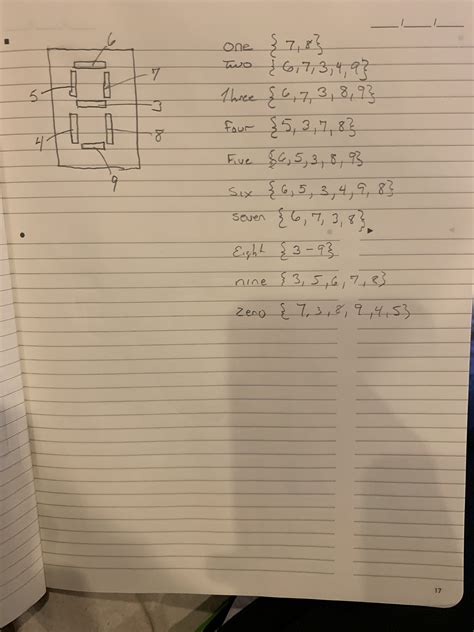 6
7
5
3
4
8
9
One {7,8}
Two {6,7,3,4,9}
Three {6,7,3,8,9}
Four {5,3,7,8}
Five {6,5,3,8,9}
Six {6,5,3,4,9,8}
Seven {6,7,3,8}
Eight {3-9}
nine {3,5,6,7,8}
Zero {7,3,8,9,4,5}
17